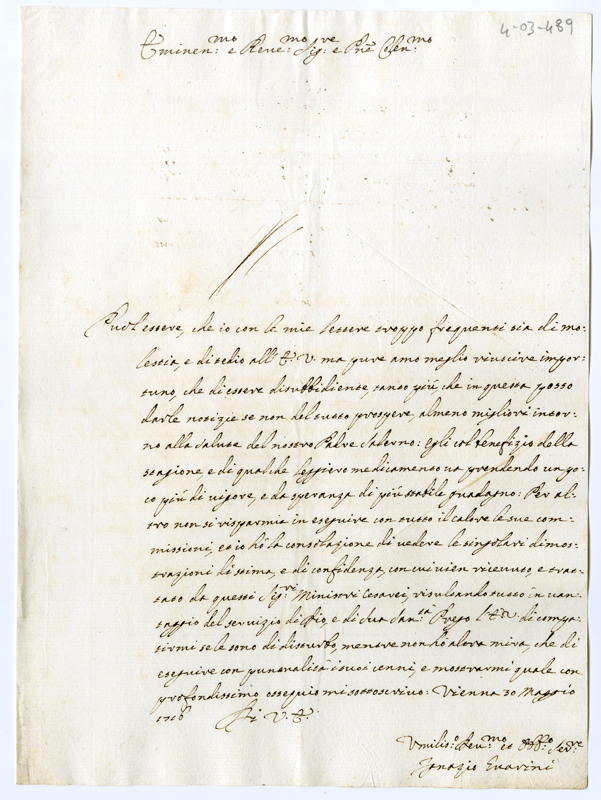 4-03-489
Eminen:mo e Reve:mo Sig:re e Pne Colen:mo
Può essere, che io con le mie lettere troppo frequenti sia di mo=
lestia, e di tedio all' E: V: ma pure amo meglio riuscire impor=
tuno, che di essere disubbidiente, tanto più, che in questa posso
darle notizie se non del tutto prospere, almeno migliori intor=
no alla salute del nostro Padre Salerno: Egli col benefizio della
stagione, e di qualche leggiero medicamento va prendendo un po=
co più di vigore, e da speranza di più stabile guadagno: Per al=
tro non si risparmia in eseguire con tutto il calore le sue com=
missioni, et io hò la consolazione di vedere le singolari dimos=
trazioni di stima, e di confidenza, con cui vien ricevuto, e trat=
tato da questi Sig:ri Ministri Cesarei, risultando tutto in van=
taggio del servizio di Dio, e di sua San:tà Prego l' E V: di compa=
tirmi se le sono di disturbo, mentre non hò altra mira, che di
eseguire con puntualità i suoi cenni, e mostrarmi quale con
profondissimo ossequio mi sottoscrivo: Vienna 30 Maggio
1716 Di V: E:
Umiliss:o Dev:mo et Obb:o Ser:re
Ignazio Guarini